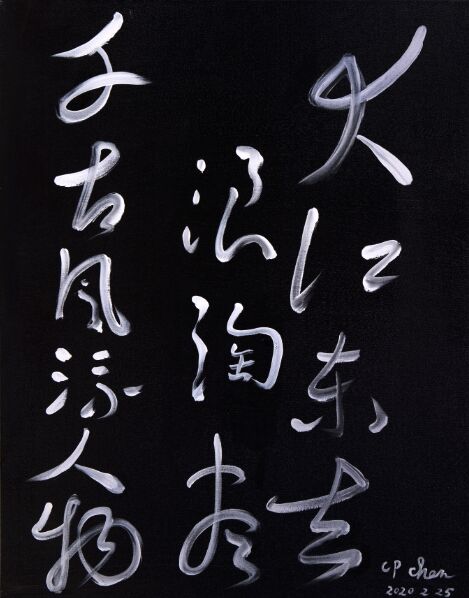 大江东去
浪淘尽
千古风流人物
CP Chen
2020 2 25